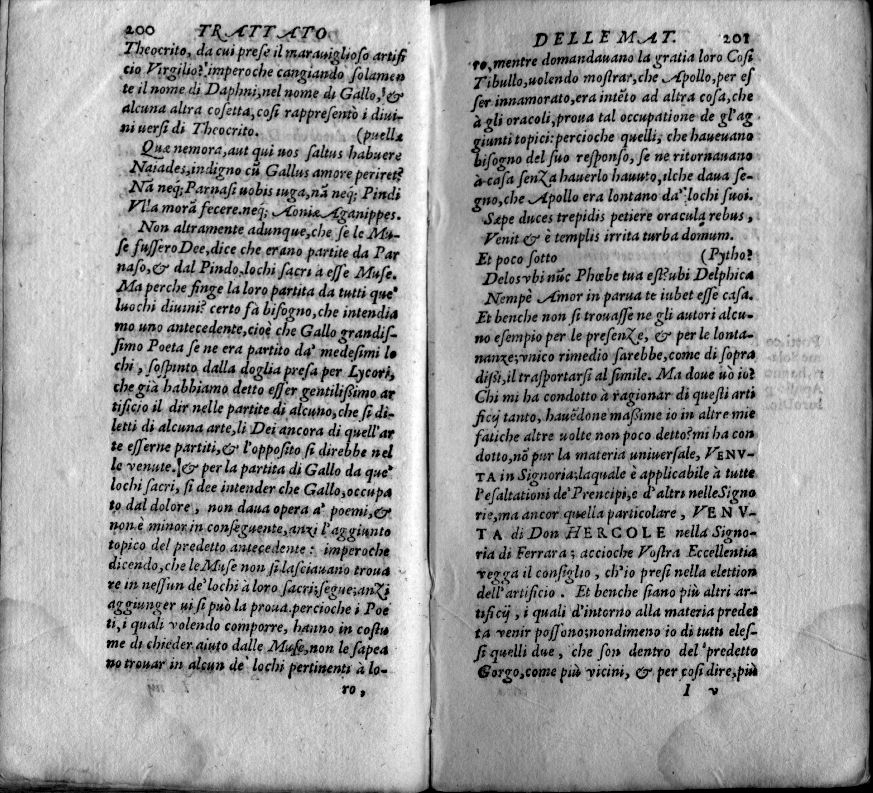 200 TRATTATO
Theocrito, da cui prese il marauiglioso artifi
cio Virgilio? imperoche cangiando solamen
te il nome di Daphni, nel nome di Gallo, &
alcuna altra cosetta, cosi rappresentò i diui-
ni uersi di Theocrito. (puellæ
Quæ nemora, aut qui uos saltus habuere
Naiades, indigno cũ Gallus amore periret?
Nã neq; Parnasi uobis iuga, nã neq; Pindi
Vlla morã fecere. neq; Aoniæ Aganippes.
Non altramente adunque, che se le Mu-
se fussero Dee, dice che erano partite da Par
naso, & dal Pindo, lochi sacri à esse Muse.
Ma perche finge la loro partita da tutti que'
luochi diuini? certo fà bisogno, che intendia
mo uno antecedente, cioè che Gallo grandis-
simo Poeta se ne era partito da' medesimi lo
chi, sospinto dalla doglia presa per Lycori,
che già habbiamo detto esser gentilißimo ar
tificio il dir nelle partite di alcuno, che si di-
letti di alcuna arte, li Dei ancora di quell'ar
te esserne partiti, & l'opposito si direbbe nel
le venute. & per la partita di Gallo da que'
lochi sacri, si dee intender che Gallo, occupa
to dal dolore, non daua opera a' poemi, &
non è minor in conseguente, anzi l'aggiunto
topico del predetto antecedente: imperoche
dicendo, che le Muse non si lasciauano troua
re in nessun de' lochi à loro sacri; segue; anzi
aggiunger ui si può la proua. percioche i Poe
ti, i quali volendo comporre, hanno in costu
me di chieder aiuto dalle Muse, non le sapea
no trouar in alcun de' lochi pertinenti à lo-
ro,
DELLE MAT. 201
ro, mentre domandauano la gratia loro Cosi
Tibullo, uolendo mostrar, che Apollo, per es
ser innamorato, era intẽto ad altra cosa, che
à gli oracoli, proua tal occupatione de gl'ag
giunti topici: percioche quelli, che haueuano
bisogno del suo responso, se ne ritornauano
à casa senza hauerlo hauuto, ilche daua se-
gno, che Apollo era lontano da' lochi suoi.
Sæpe duces trepidis petiere oracula rebus,
Venit & è templis irrita turba domum.
Et poco sotto (Pytho?
Delos vbi nũc Phœbe tua est? ubi Delphica
Nempè Amor in parua te iubet esse casa.
Et benche non si trouasse ne gli autori alcu-
no esempio per le presenze, & per le lonta-
nanze; vnico rimedio sarebbe, come di sopra
dißi, il trasportarsi al simile. Ma doue uò io?
Chi mi ha condotto à ragionar di questi arti
ficij tanto, hauẽdone maßime io in altre mie
fatiche altre uolte non poco detto? mi ha con
dotto, nõ pur la materia uniuersale, VENV-
TA in Signoria; laquale è applicabile à tutte
l'esaltationi de' Prencipi, e d'altri nelle Signo
rie, ma ancor quella particolare, VENV-
TA di Don HERCOLE nella Signo-
ria di Ferrara; accioche Vostra Eccellentia
vegga il consiglio, ch'io presi nella elettion
dell'artificio. Et benche siano più altri ar-
tificij, i quali d'intorno alla materia predet
ta venir possono; nondimeno io di tutti eles-
si quelli due, che son dentro del predetto
Gorgo, come più vicini, & per cosi dire, più
I v